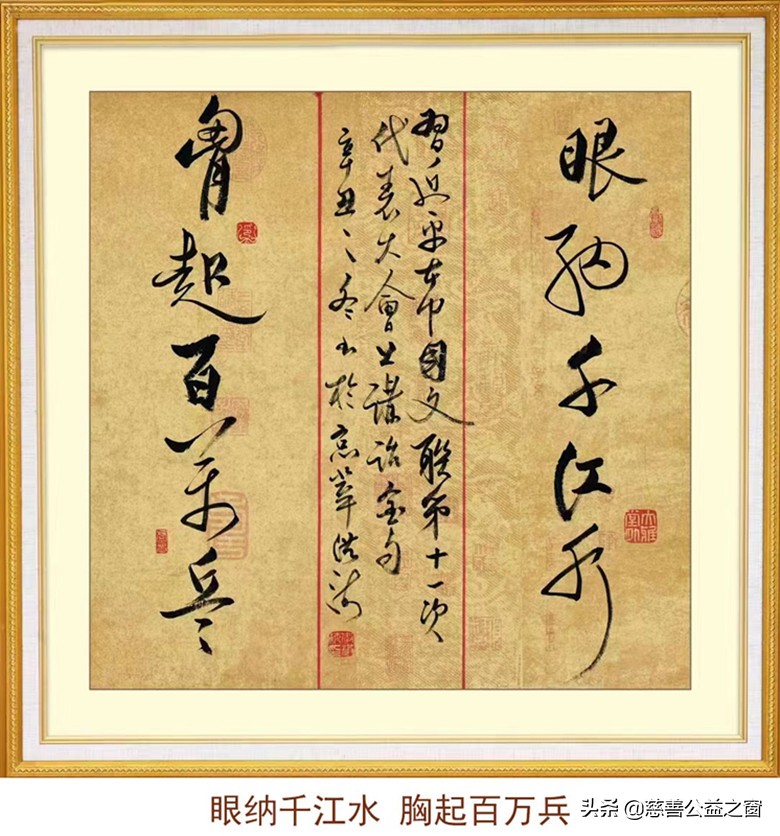 眼納千江水
習近平在中國文聯第十一次
代表大會上講話金句
辛丑之冬书於京華
胷起百萬兵
眼纳千江水 胸起百万兵
头条 @慈善公益之窗